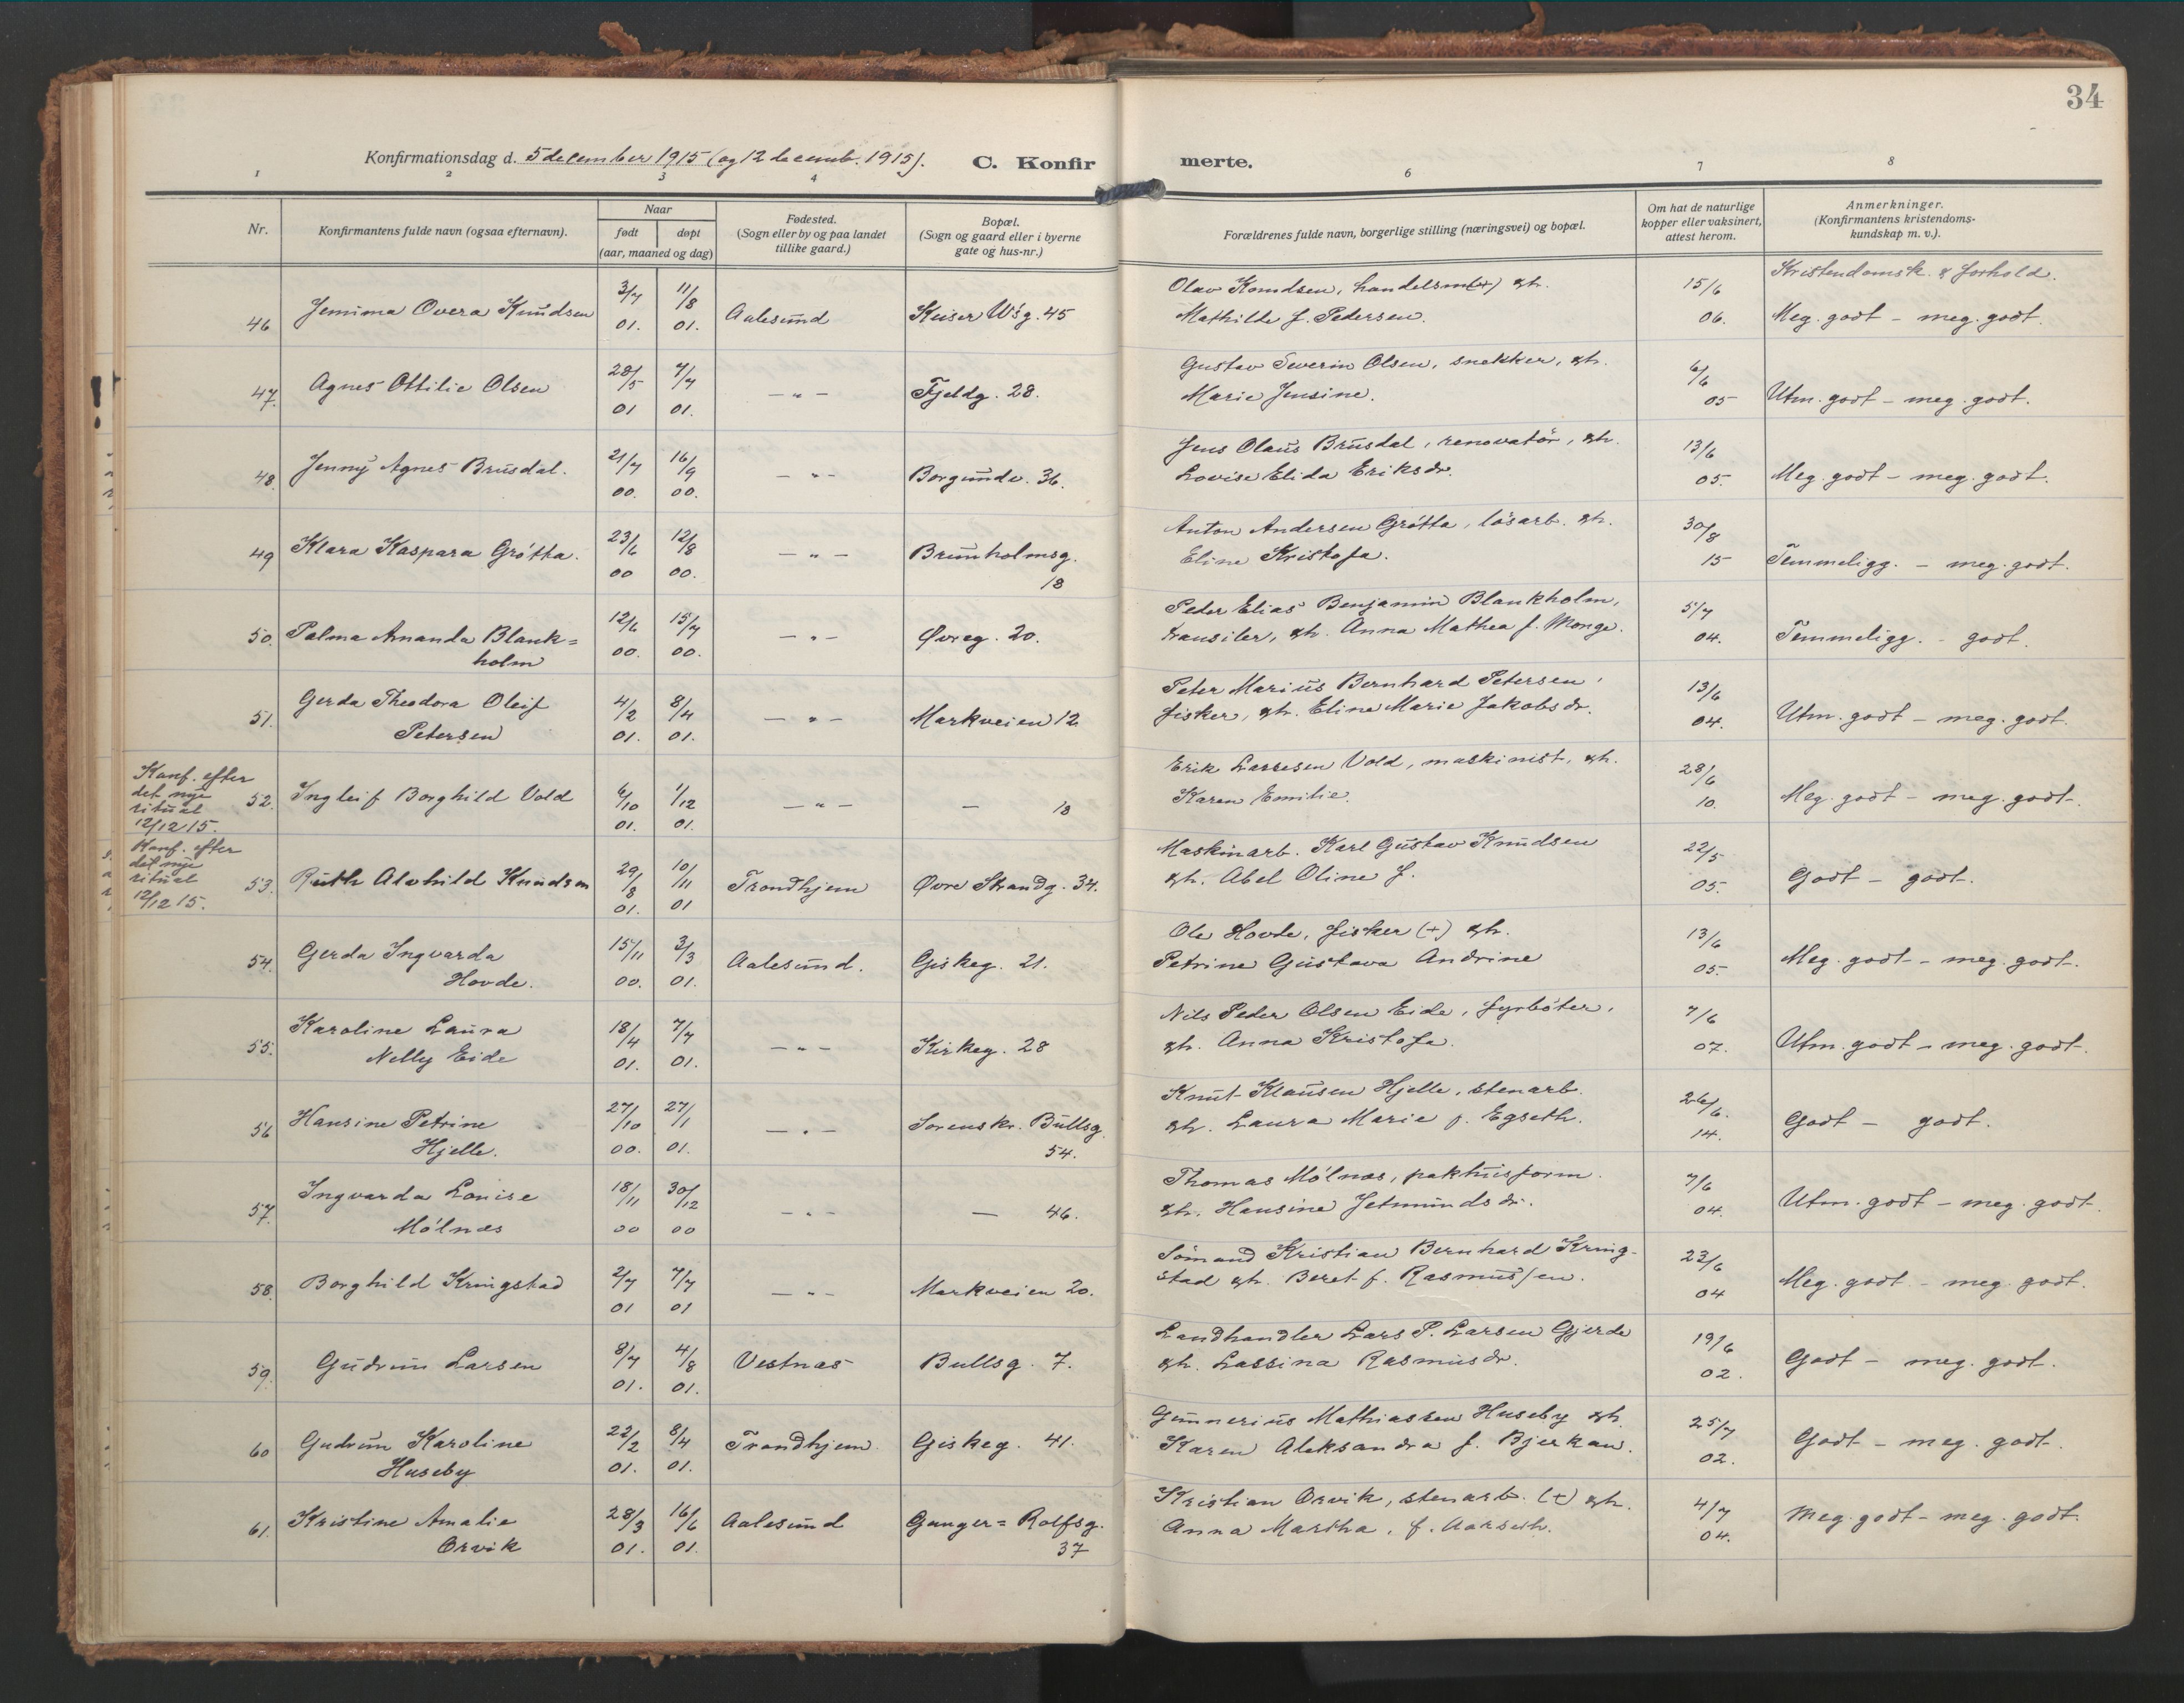 34
Konfirmationsdag d. 5 december 1915 (og 12 decemb. 1915).
C. Konfir
merte.
1 2 3 4 6 7 8
Nr.
Konfirmantens fulde navn (ogsaa efternavn).
Naar
født
døpt
(aar, maaned og dag)
Fødested.
(Sogn eller by og paa landet
tillike gaard.)
Bopæl.
(Sogn og gaard eller i byerne
gate og hus-nr.)
Forældrenes fulde navn, borgerlige stilling (næringsvei) og bopæl.
Om hat de naturlige
kopper eller vaksinert,
attest herom.
Anmerkninger.
(Konfirmantens kristendoms-
kundskap m. v.).
Kristendomsk. & forhold.
46 Jemima Overa Knudsen 3/7 01. 11/8 01. Aalesund Keiser W's g. 45
Olav Knudsen, handelsm (+) &h.
Mathilde f. Pedersen.
15/6 06. Meg. godt - meg. godt.
47. Agnes Ottilie Olsen 28/5 01 7/7 01. - " - Fjeldg. 28.
Gustav Severin Olsen, snekker, &h.
Marie Jensine.
6/6 05 Utm. godt - meg. godt.
48. Jenny Agnes Brusdal. 21/7 00. 16/9 00. - " - Borgundv. 36.
Jens Olaus Brusdal, renovatör, &h.
Lovise Elida Eriksdr.
13/6 05. Meg. godt - meg. godt.
49 Klara Kaspara Grótta. 23/6 00 12/8 00. - " - Brunholmsg.
18
Anton Andersen Grótta, lösarb. &h.
Eline Kristofa.
30/8 15 Temmeligg. - meg. godt.
50. Palma Amanda Blank=
holm
12/6 00. 15/7 00. - " - Øvreg. 20.
Peder Elias Benjamin Blankholm,
transiler, &h. Anna Mathea f. Monge.
5/7 04. Temmeligg. - godt.
51. Gerda Theodora Oleif
Petersen
4/2 01. 8/4 01. - " - Markveien 12
Peter Marius Bernhard Petersen,
fisker, &h. Eline Marie Jakobsdr.
13/6 04. Utm. godt - meg. godt.
Konf. efter
det nye
ritual
12/12 15.
52. Ingleif Borghild Vold 6/10 01. 1/12 01. - " - - 18
Erik Larsesen Vold, maskinist, &h.
Karen Emilie.
28/6 10. Meg. godt - meg. godt.
Konf. efter
det nye
ritual
12/12 15.
53. Ruth Alvhild Knudsen 29/8 01. 10/11 01 Trondhjem Øvre Strandg. 34.
Maskinarb. Karl Gustav Knudsen
&h. Abel Oline f.
22/5 05. Godt - godt.
54. Gerda Ingvarda
Hovde.
15/11 00. 3/3 01. Aalesund. Giskeg. 21.
Ole Hovde, fisker (+) &h.
Petrine Gustava Andrine
13/6 05. Meg. godt - meg. godt.
55. Karoline Laura
Nelly Eide
18/4 01. 7/7 01. - " - Kirkeg. 28
Nils Peder Olsen Eide, fyrböter,
&h. Anna Kristofa.
7/6 07. Utm. godt - meg. godt.
56 Hansine Petrine
Hjelle.
27/10 00. 27/1 01. - " - Sorenskr. Bullsg.
54.
Knut Klausen Hjelle, stenarb.
&h. Laura Marie f. Egseth.
26/6. 14. Godt - godt.
57. Ingvarda Louise
Mólnæs
18/11 00 30/12 00 - " - - 46.
Thomas Mólnæs, pakhusform.
&h. Hansine Jetmundsdr.
7/6 04. Utm. godt - meg. godt.
58. Borghild Kringstad 2/7 01 7/7 01 - " - Markveien 20.
Sömand Kristian Bernhard Kring-
stad &h. Beret f. Rasmussen.
23/6 04 Meg. godt - meg. godt.
59. Gudrun Larsen 8/7 01. 4/8 01. Vestnæs Bullsg. 7.
Landhandler Lars P. Larsen Gjerde
&h. Lassina Rasmusdr.
19/6 02. Godt - meg. godt.
60 Gudrun Karoline
Huseby
22/2 01. 8/4 01. Trondhjem. Giskeg. 41.
Gunnerius Mathiassen Huseby &h.
Karen Aleksandra f. Bjerkan.
25/7 02. Godt - meg. godt.
61. Kristine Amalie
Orvik
28/3 01. 16/6 01. Aalesund Ganger= Rolfsg.
37
Kristian Orvik, stenarb. (+) &h.
Anna Martha, f. Aarseth.
4/7 04. Meg. godt - meg. godt.